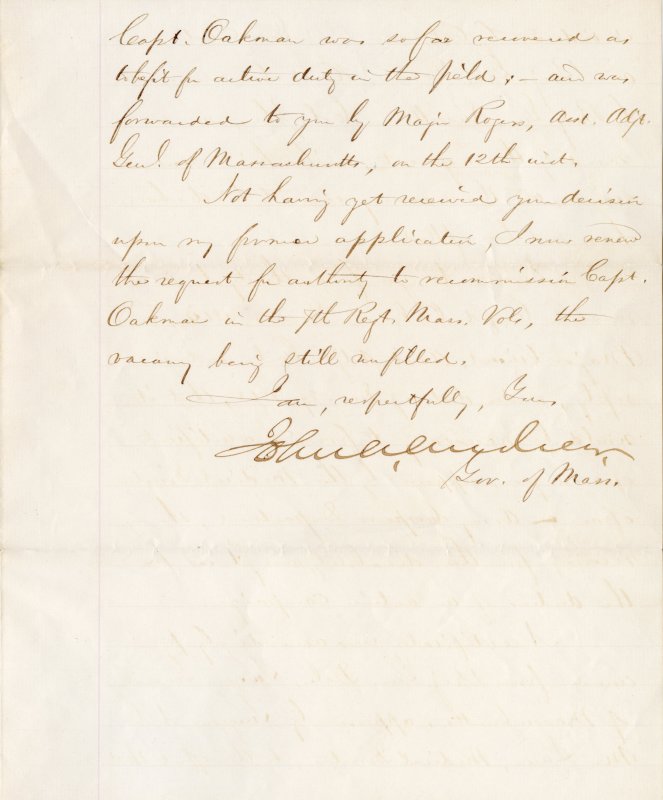 Capt. Oakman was so far recovered as
to be fit for active duty in the field; – and was
forwarded to you by Major Rogers, Asst. Adjt.
Genl. of Massachusetts, on the 12th inst.
Not having yet received your decision
upon my former application, I now renew
the request for authority to recommission Capt.
Oakman in the 7th Regt. Mass. Vols, the
vacancy being still unfilled.
I am, respectfully, Yours,
John A. Andrew,
Gov. of Mass.